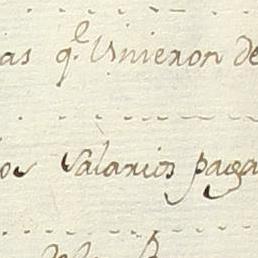 as q.e Vinieron de
os Salarios paga